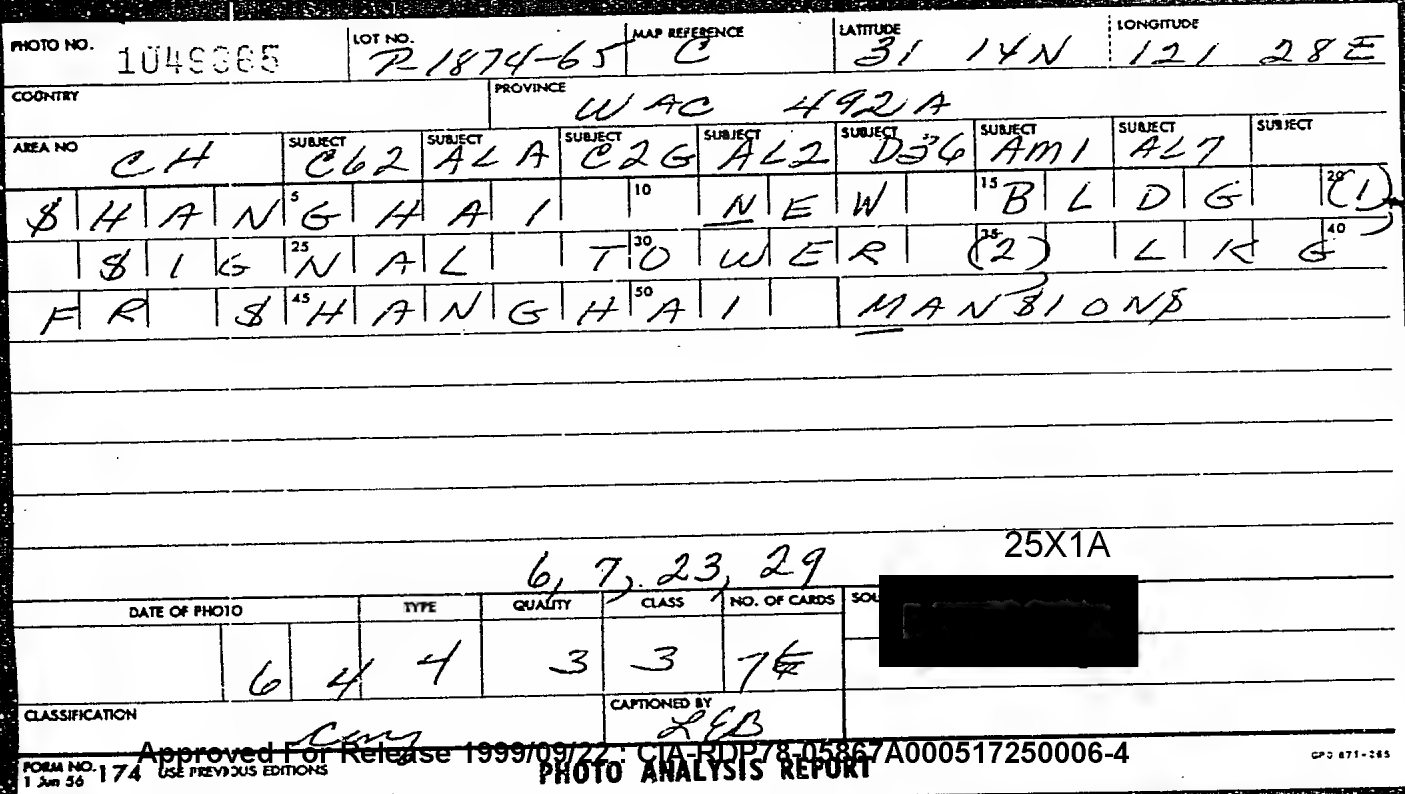 PHOTO NO. 1049365 LOT NO. R-1874-65 MAP REFERENCE C LATITUDE 31 14N LONGITUDE 121 28E
COUNTRY PROVINCE WAC 492A
AREA NO CH SUBJECT C62 SUBJECT ALA SUBJECT C2G SUBJECT AL2 SUBJECT D36 SUBJECT AM1 SUBJECT AL7 SUBJECT
$HANGHAI NEW BLDG (1)
$IGNAL TOWER (2) LKG
FR $HANGHAI MAN$ION$
25X1A
6, 7, 23, 29
DATE OF PHOTO TYPE QUALITY CLASS NO. OF CARDS
64 4 3 3 7
CLASSIFICATION CAPTIONED BY LEB
Approved For Release 1999/09/22 : CIA-RDP78-05867A000517250006-4
FORM NO. 174 USE PREVIOUS EDITIONS PHOTO ANALYSIS REPORT GPO 871-265
1 Jun 56